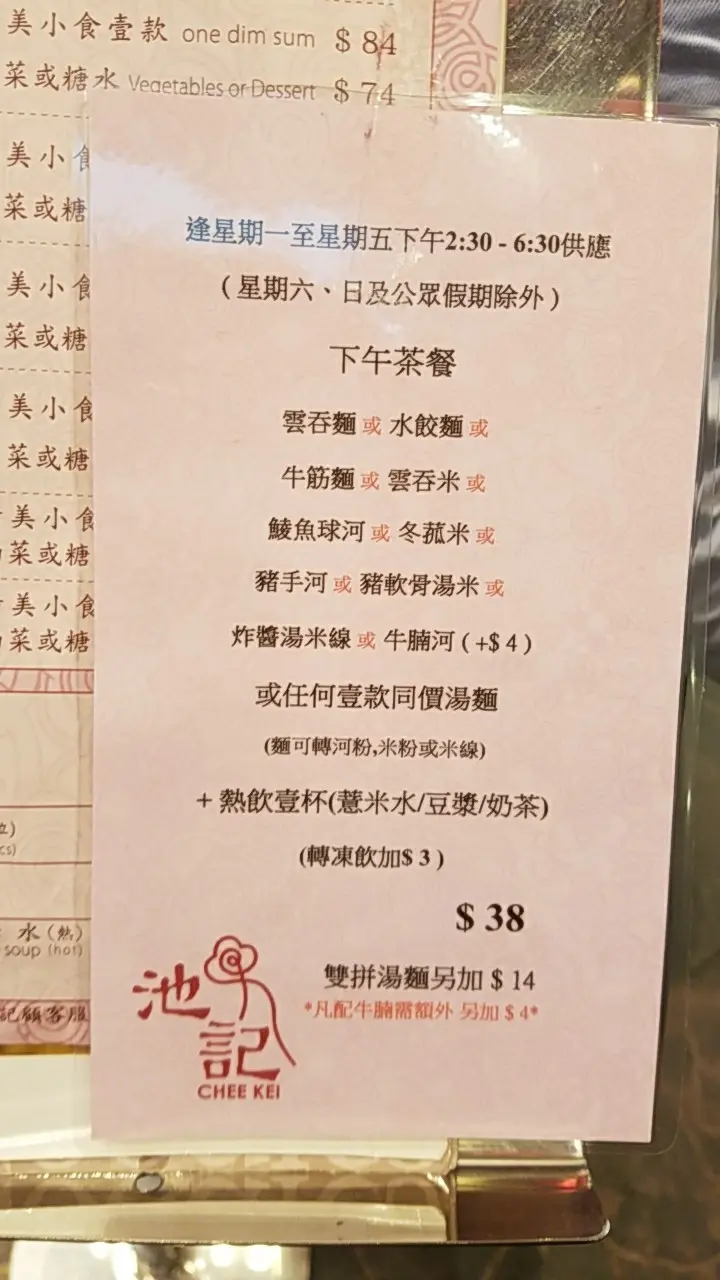 美小食壹款 one dim sum $ 84
菜或糖水 Vegetables or Dessert $ 74
美小食
菜或糖
美小食
菜或糖
美小食
菜或糖
美小食
菜或糖
美小食
菜或糖
水(熱)
soup (hot)
記顧客服
逢星期一至星期五下午2:30 - 6:30供應
(星期六、日及公眾假期除外)
下午茶餐
雲吞麵 或 水餃麵 或
牛筋麵 或 雲吞米 或
鯪魚球河 或 冬菰米 或
豬手河 或 豬軟骨湯米 或
炸醬湯米線 或 牛腩河 ( +$ 4 )
或任何壹款同價湯麵
(麵可轉河粉,米粉或米線)
+ 熱飲壹杯(薏米水/豆漿/奶茶)
(轉凍飲加$ 3 )
$ 38
雙拼湯麵另加 $ 14
*凡配牛腩需額外 另加 $ 4*
池記
CHEE KEI